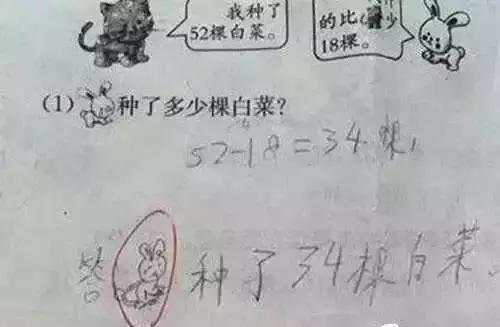 我种了
52棵白菜。
的比
少
18棵。
(1) 种了多少棵白菜?
52-18=34棵,
答 种了34棵白菜。